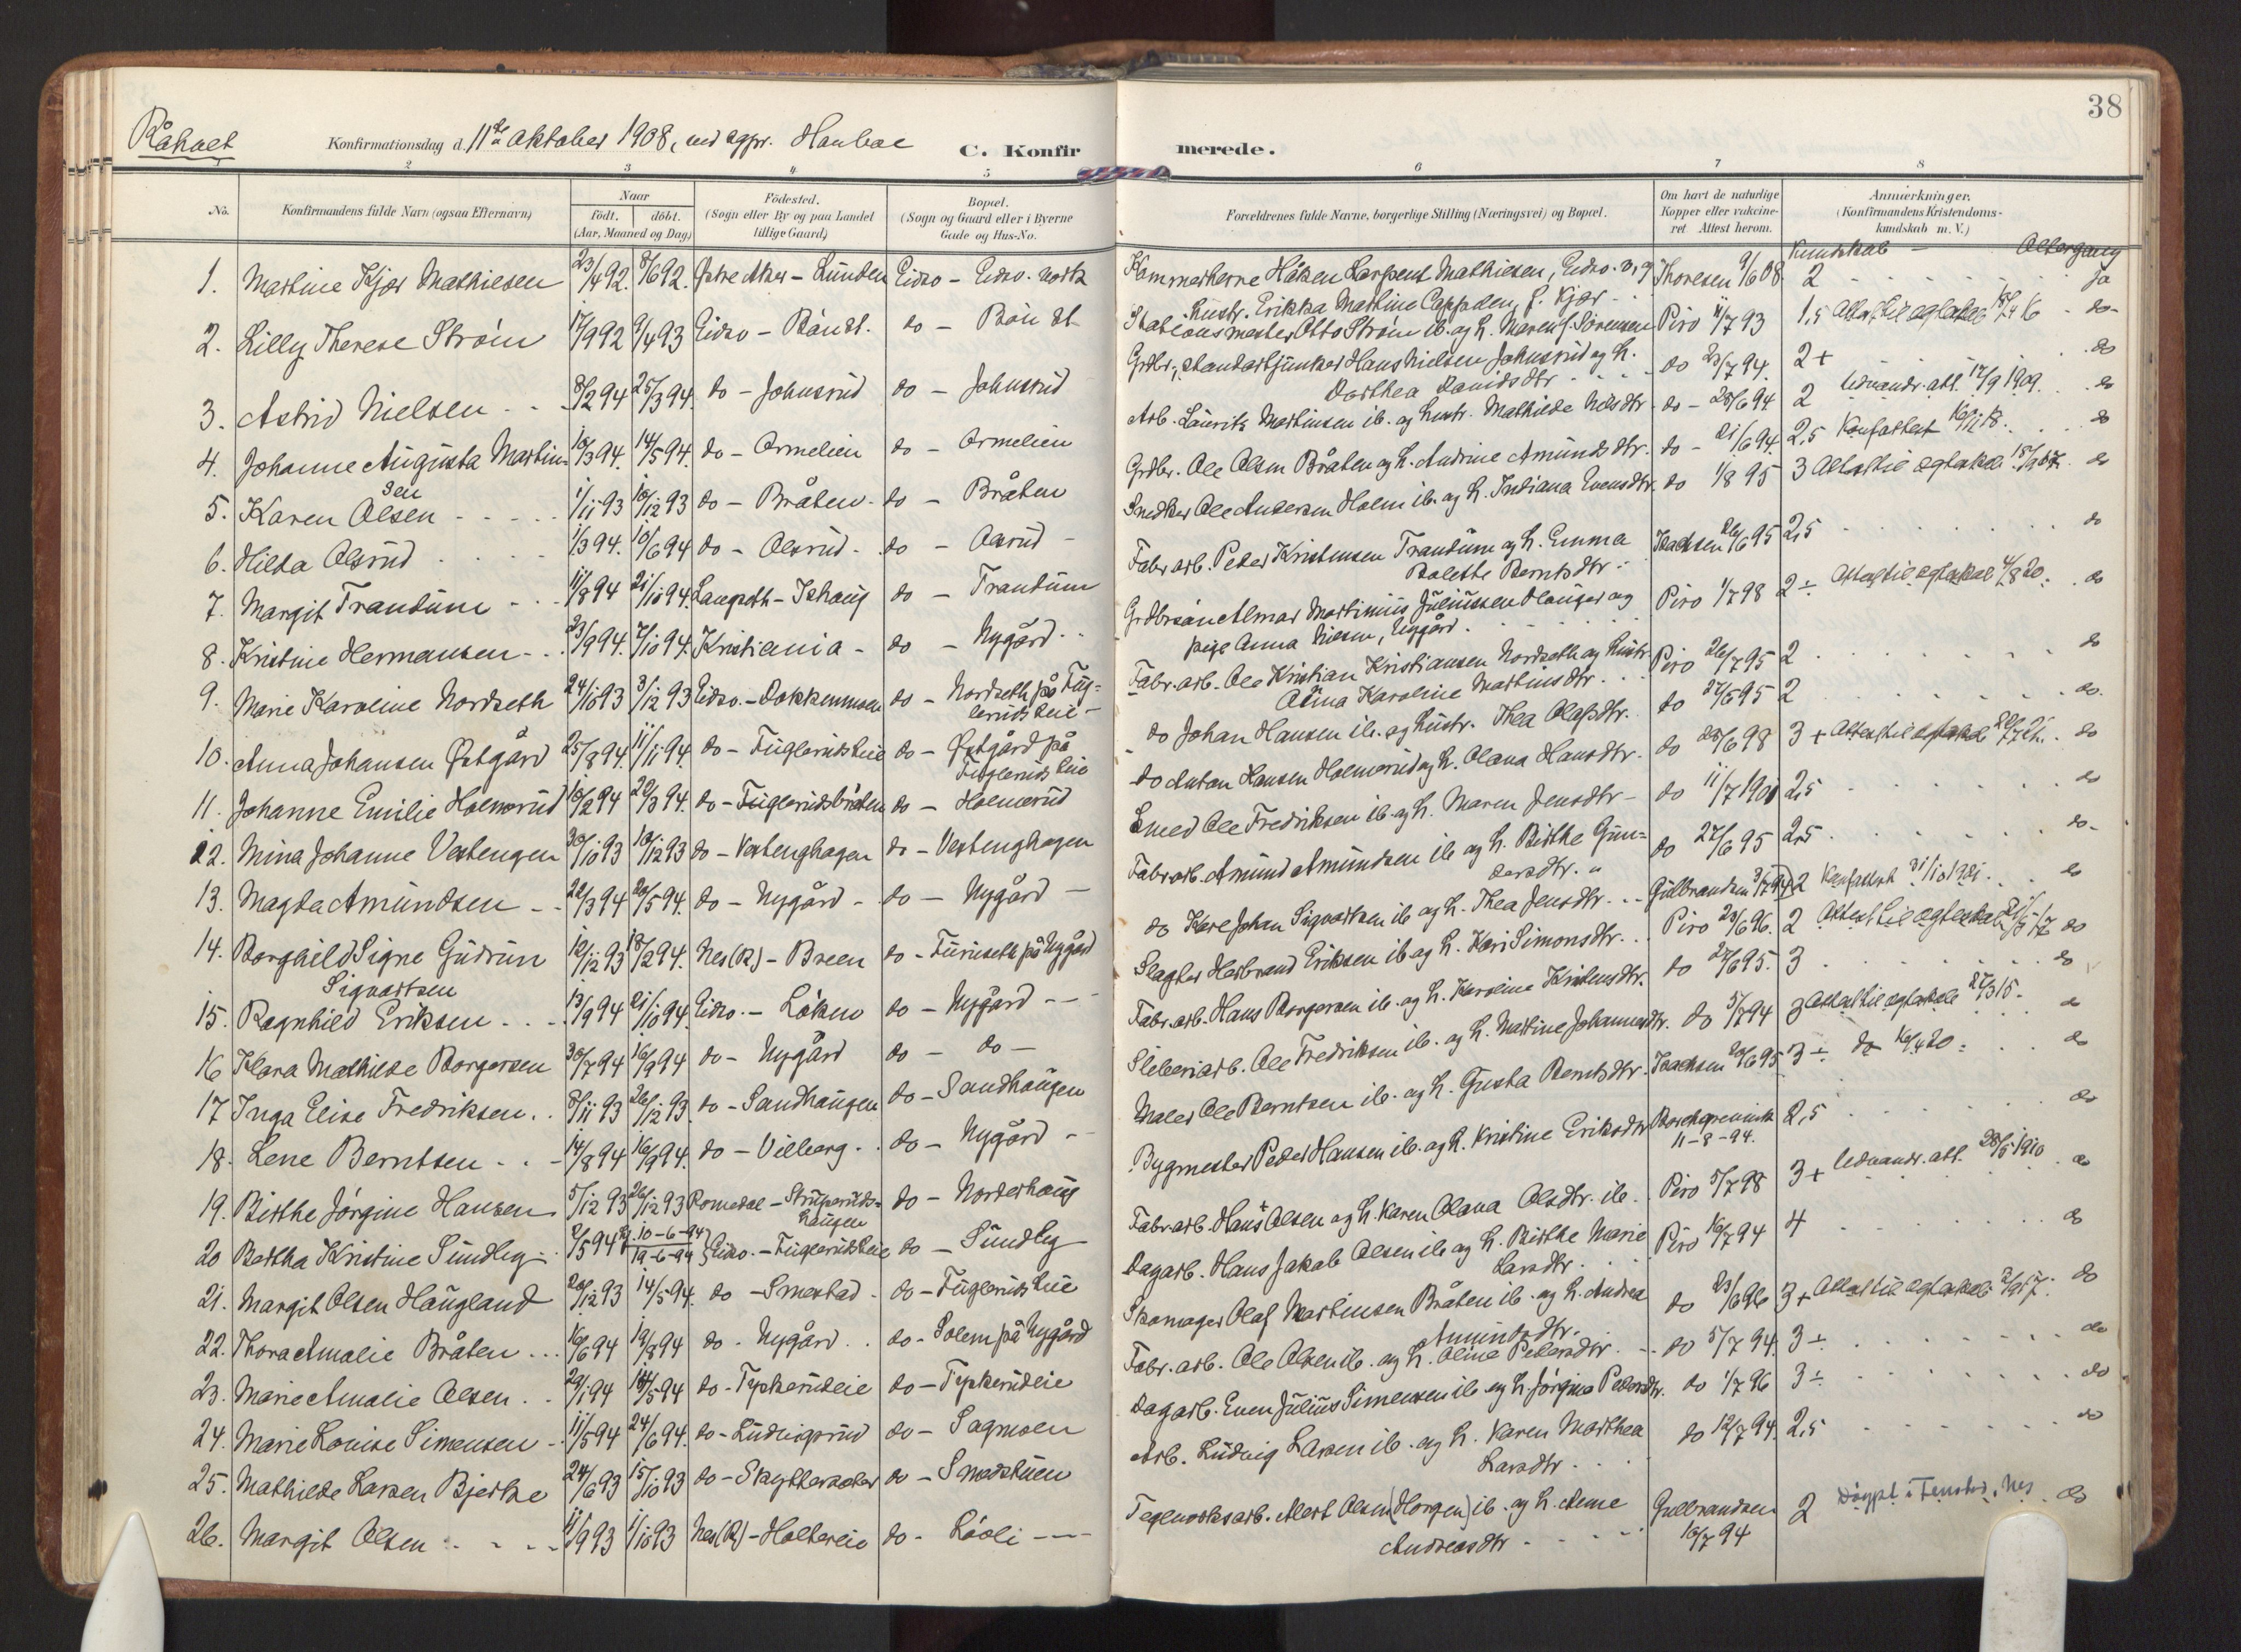 38
Råholt
Konfirmationsdag d. 11te oktober 1908, ved sgpr.
C. Konfirmerede.
1 2 3 4 5 6 7 8
No.
Konfirmandens fulde Navn (ogsaa Efternavn)
Naar
födt. döbt.
(Aar, Maaned og Dag)
Födested.
(Sogn eller By og paa Landet tillige Gaard)
Bopæl.
(Sogn og Gaard eller i Byerne Gade og Hus-No.
Forældrenes fulde Navne, borgerlige Stilling (Næringsvei) og Bopæl.
Om havt de naturlige Kopper eller vakcineret Attest herom.
Anmærkninger.
(Konfirmandens Kristendomskundskab m. V.)
Kundskab – Altergang
1. Martine Kjær Mathiesen 23/4 92. 8/6 92. Østre Aker – Lunden Eidsv – Eidsv. verk
Kammerherre Haaken Mathiesen, Eidsv. v. og Thoresen 9/6 08 2 ja
hustr. Erikka Martine Cappelen, f. Kjær
2. Lilly Therese Strøm 17/9 92 9/4 93 Eidsv – Bøn st. do – Bøn st
Stationsmester Otto Strøm ib. og h. Maren f. Sørensen Piro 11/7 93 1,5 do
3. Astrid Nielsen 8/2 94 25/3 94. do – Johnsrud do – Johnsrud
Grdbr., standartjunker Hans Nielsen Johnsrud og h. do 23/7 94. 2+ do
Dorthea Davidsdtr
4. Johanne Augusta Martinsen 10/3 94. 14/5 94. do – Ormelien do – Ormelien
Arb. Laurits Martinsen ib. og hustr. Mathilde Nilsdtr do – 25/6 94 2 Udvandr. att. 17/9 1909. do
5. Karen Olsen 1/11 93 10/12 93 do – Bråten do – Bråten
Grdbr. Ole Olsen Bråten og h. Andrine Amundsdtr. do – 21/6 94. 2,5 Konfattest do
6. Hilda Olsrud 1/3 94. 10/6 94 do – Olsrud do – Olsrud
Snedker Ole Andersen Holm ib. og h. Indiana Evensdtr. do 1/8 95 3 do
7. Margit Trandum 11/8 94 21/10 94. Langseth – Ishaug do – Trandum
Fabr. arb. Peder Kristensen Trandum og h. Emma Isachsen 26/6 95 2,5 do
Bolette Berntsdtr.
8. Kristine Hermansen 23/9 94. 7/10 94. Kristiania do – Nygård
Grdbrsøn Almar Martinius Juliussen Hauger og Piro 1/7 98 2÷ do
pige Anna Nilsen, Nygård.
9. Marie Karoline Nordseth 24/10 93 3/12 93 Eidsv. – Dokkenmoen do – Nordseth på Fuglerudseie
Fabr. arb. Ole Kristian Kristiansen Nordseth og hustr. Piro 26/7 95 2 do
Olina Karoline Martinsdtr.
10. Anna Johansen Østgård 25/8 94. 11/11 94. do – Fuglerudseie do – Østgård på Fuglerudseie
do Johan Hansen ib. og hustr. Thea Olafsdtr. do 27/6 95 2 do.
11. Johanne Emilie Holmsrud 10/2 94 20/3 94. do – Fuglerudsbråten do – Holmsrud
do Anton Hansen Holmsrud og h. Olava Hansdtr. do 28/6 98 3+ do
12. Mina Johanne Verkengen 30/10 93 10/12 93 do – Verkenghagen do – Verkenghagen
Smed Ole Fredriksen ib. og h. Maren Jensdtr – do 11/7 1901 2,5 do
13. Magda Amundsen 22/3 94 20/5 94. do – Nygård do – Nygård
Fabr. arb. Amund Amundsen ib og h. Birthe Gundersdtr. do 27/6 95 2,5 do.
14. Borghild Signe Gudrun Sigvartsen 10/12 93 18/2 94. Nes (R.) – Breen do – Furuseth på Nygård
do Karl Johan Sigvartsen ib og h. Thea Jensdtr. Gulbrandsen 3/7 94 2 Konfattest 31/10 1921. do
15. Ragnhild Eriksen 13/9 94 21/10 94. Eidsv. – Løken do – Nygård
Slagter Herbrand Eriksen ib og h. Kari Simonsdtr. Piro 23/6 96. 2 do
16 Klara Mathilde Borgersen 30/7 94 16/9 94 do – Nygård do – do –
Fabr. arb. Hans Borgersen ib. og h. Karoline Kristensdtr. do 27/6 95. 3 do
17 Inga Elise Fredriksen 8/11 93 26/12 93. do – Sandhaugen do – Sandhaugen
Sliberiarb. Ole Fredriksen ib. og h. Martine Johannesdtr. do 5/7 94 3 do
18. Lene Berntsen 14/8 94 16/9 94. do – Vilberg do – Nygård
Maler Ole Berntsen ib. og h. Gusta Berntsdtr. Isachsen 20/6 95 3÷ do 16/4 20 do
19. Birthe Jørgine Hansen 5/12 93 26/12 93 Romedal – do – Norderhaug
Bygmester Peder Hansen ib. og h. Kristine Eriksdtr 11-8-94. 2,5 do
20 Bertha Kristine Sundby 2/5 94 10-6-94 19-6-94 Eidsv. – Fuglerudseie do – Sundby
Fabr. arb. Hans Olsen og h. Karen Olava Olsdtr. ib. Piro 5/7 98 3+ Udvandr. att. 28/5 1910 do
21. Margit Olsen Haugland 20/12 93 14/5 94. do – Smestad do – Fuglerudseie
Dagarb. Hans Jakob Olsen ib og h. Birthe Marie Larsdtr. Piro 16/7 94 4 do
22. Thora Amalie Bråten 16/6 94 19/8 94 do – Nygård do – Solem på Nygård
Skomager Olaf Martinsen Bråten ib. og h. Andrea Amundsdtr. do 23/6 96 3+ do
23. Marie Amalie Olsen 29/1 94 14/5 94 do – Typkerudeie do – Typkerudeie
Fabr. arb. Ole Olsen ib. og h. Oline Pedersdtr. do 5/7 94. 3÷ do
24. Marie Louise Simensen 11/5 94 24/6 94. do – Ludvigsrud do – Sagmoen
Dagarb. Even Julius Simensen ib og h. Jørgine Pedersdtr. do 1/7 96 3÷ do
25. Mathilde Larsen Bjerke 24/6 93 15/10 93 do – do – Smedstuen
Arb. Ludvig Larsen ib. og h. Karen Marthea Larsdtr. do 12/7 94. 2,5 do
26. Margit Olsen 11/9 93 1/10 93 Nes (R) – Holtereie do – Låoli
Teglverksarb. Albert Olsen (Horgen) ib. og h. Anne Andreasdtr Gulbrandsen 16/7 94 2 do